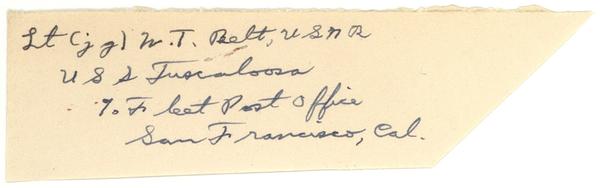 Lt (jg) W. T. Belt, USNR
USS Tuscaloosa
% Fleet Post Office
San Francisco, Cal.